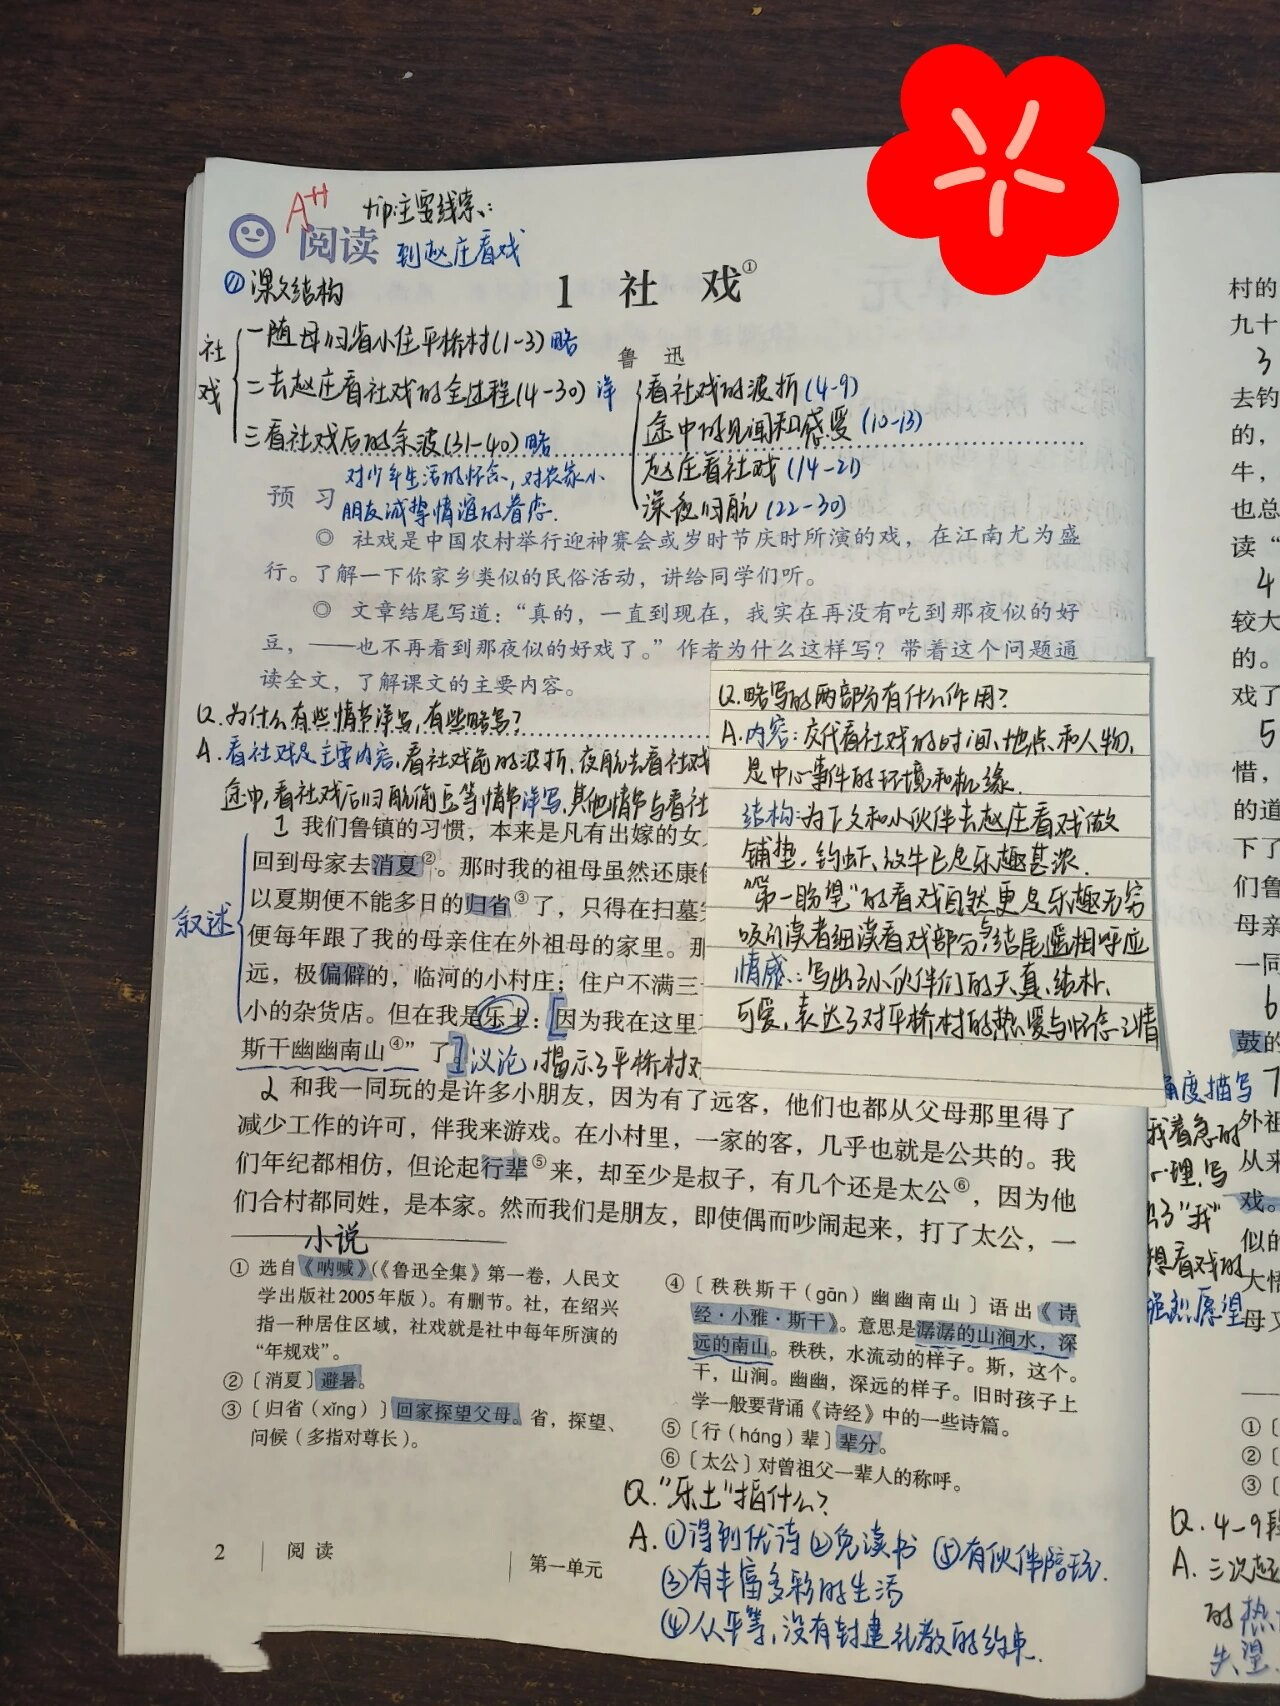 A++
tip:主要线索:
阅读 到赵庄看戏
① 课文结构
1 社戏①
鲁迅
社戏
一随母归省小住平桥村(1-3)略
二去赵庄看社戏的全过程(4-30)详
三看社戏后的余波(31-40)略
看社戏的波折(4-9)
途中的见闻和感受(10-13)
赵庄看社戏(14-21)
深夜归航(22-30)
对少年生活的怀念,对农家小
朋友诚挚情谊的眷恋.
预习
◎ 社戏是中国农村举行迎神赛会或岁时节庆时所演的戏,在江南尤为盛
行。了解一下你家乡类似的民俗活动,讲给同学们听。
◎ 文章结尾写道:“真的,一直到现在,我实在再没有吃到那夜似的好
豆,——也不再看到那夜似的好戏了。”作者为什么这样写?带着这个问题通
读全文,了解课文的主要内容。
Q.为什么有些情节详写,有些略写?
A.看社戏是主要内容,看社戏前的波折、夜航去看社戏
途中,看社戏后归航偷豆等情节详写,其他情节与看社
Q.略写的两部分有什么作用?
A.内容:交代看社戏的时间、地点、和人物,
是中心事件的环境和机缘.
结构:为下文和小伙伴去赵庄看戏做
铺垫.钓虾、放牛已是乐趣甚浓.
“第一盼望”的看戏自然更是乐趣无穷
吸引读者细读看戏部分与结尾遥相呼应
情感:写出了小伙伴们的天真、结朴、
可爱,表达了对平桥村的热爱与怀念之情
叙述
1 我们鲁镇的习惯,本来是凡有出嫁的女
回到母家去消夏②。那时我的祖母虽然还康
以夏期便不能多日的归省③了,只得在扫墓
便每年跟了我的母亲住在外祖母的家里。那
远,极偏僻的,临河的小村庄;住户不满三
小的杂货店。但在我是乐土:因为我在这里
斯干幽幽南山④”了。议论,揭示了平桥村对
2 和我一同玩的是许多小朋友,因为有了远客,他们也都从父母那里得了
减少工作的许可,伴我来游戏。在小村里,一家的客,几乎也就是公共的。我
们年纪都相仿,但论起行辈⑤来,却至少是叔子,有几个还是太公⑥,因为他
们合村都同姓,是本家。然而我们是朋友,即使偶而吵闹起来,打了太公,一
小说
① 选自《呐喊》(《鲁迅全集》第一卷,人民文
学出版社2005年版)。有删节。社,在绍兴
指一种居住区域,社戏就是社中每年所演的
“年规戏”。
②〔消夏〕避暑。
③〔归省(xǐng)〕回家探望父母。省,探望、
问候(多指对尊长)。
④〔秩秩斯干(gān)幽幽南山〕语出《诗
经·小雅·斯干》。意思是潺潺的山涧水,深
远的南山。秩秩,水流动的样子。斯,这个。
干,山涧。幽幽,深远的样子。旧时孩子上
学一般要背诵《诗经》中的一些诗篇。
⑤〔行(háng)辈〕辈分。
⑥〔太公〕对曾祖父一辈人的称呼。
Q.“乐土”指什么?
A.①得到优待②免读书 ⑤有伙伴陪玩.
③有丰富多彩的生活
④人平等,没有封建礼教的约束.
2 阅读
第一单元
村的
九十
3
去钓
的,
牛,
也总
读“
4
较大
的。
戏了
5
惜,
的道
下了
们鲁
母亲
一同
6
鼓的
7
外祖
从来
戏。
似的
大悟
母又
角度描写
我着急的
心理,写
出了“我”
想看戏的
强烈愿望
①〔
②〔
③〔
Q.4-9段
A.三次起
的热
失望.